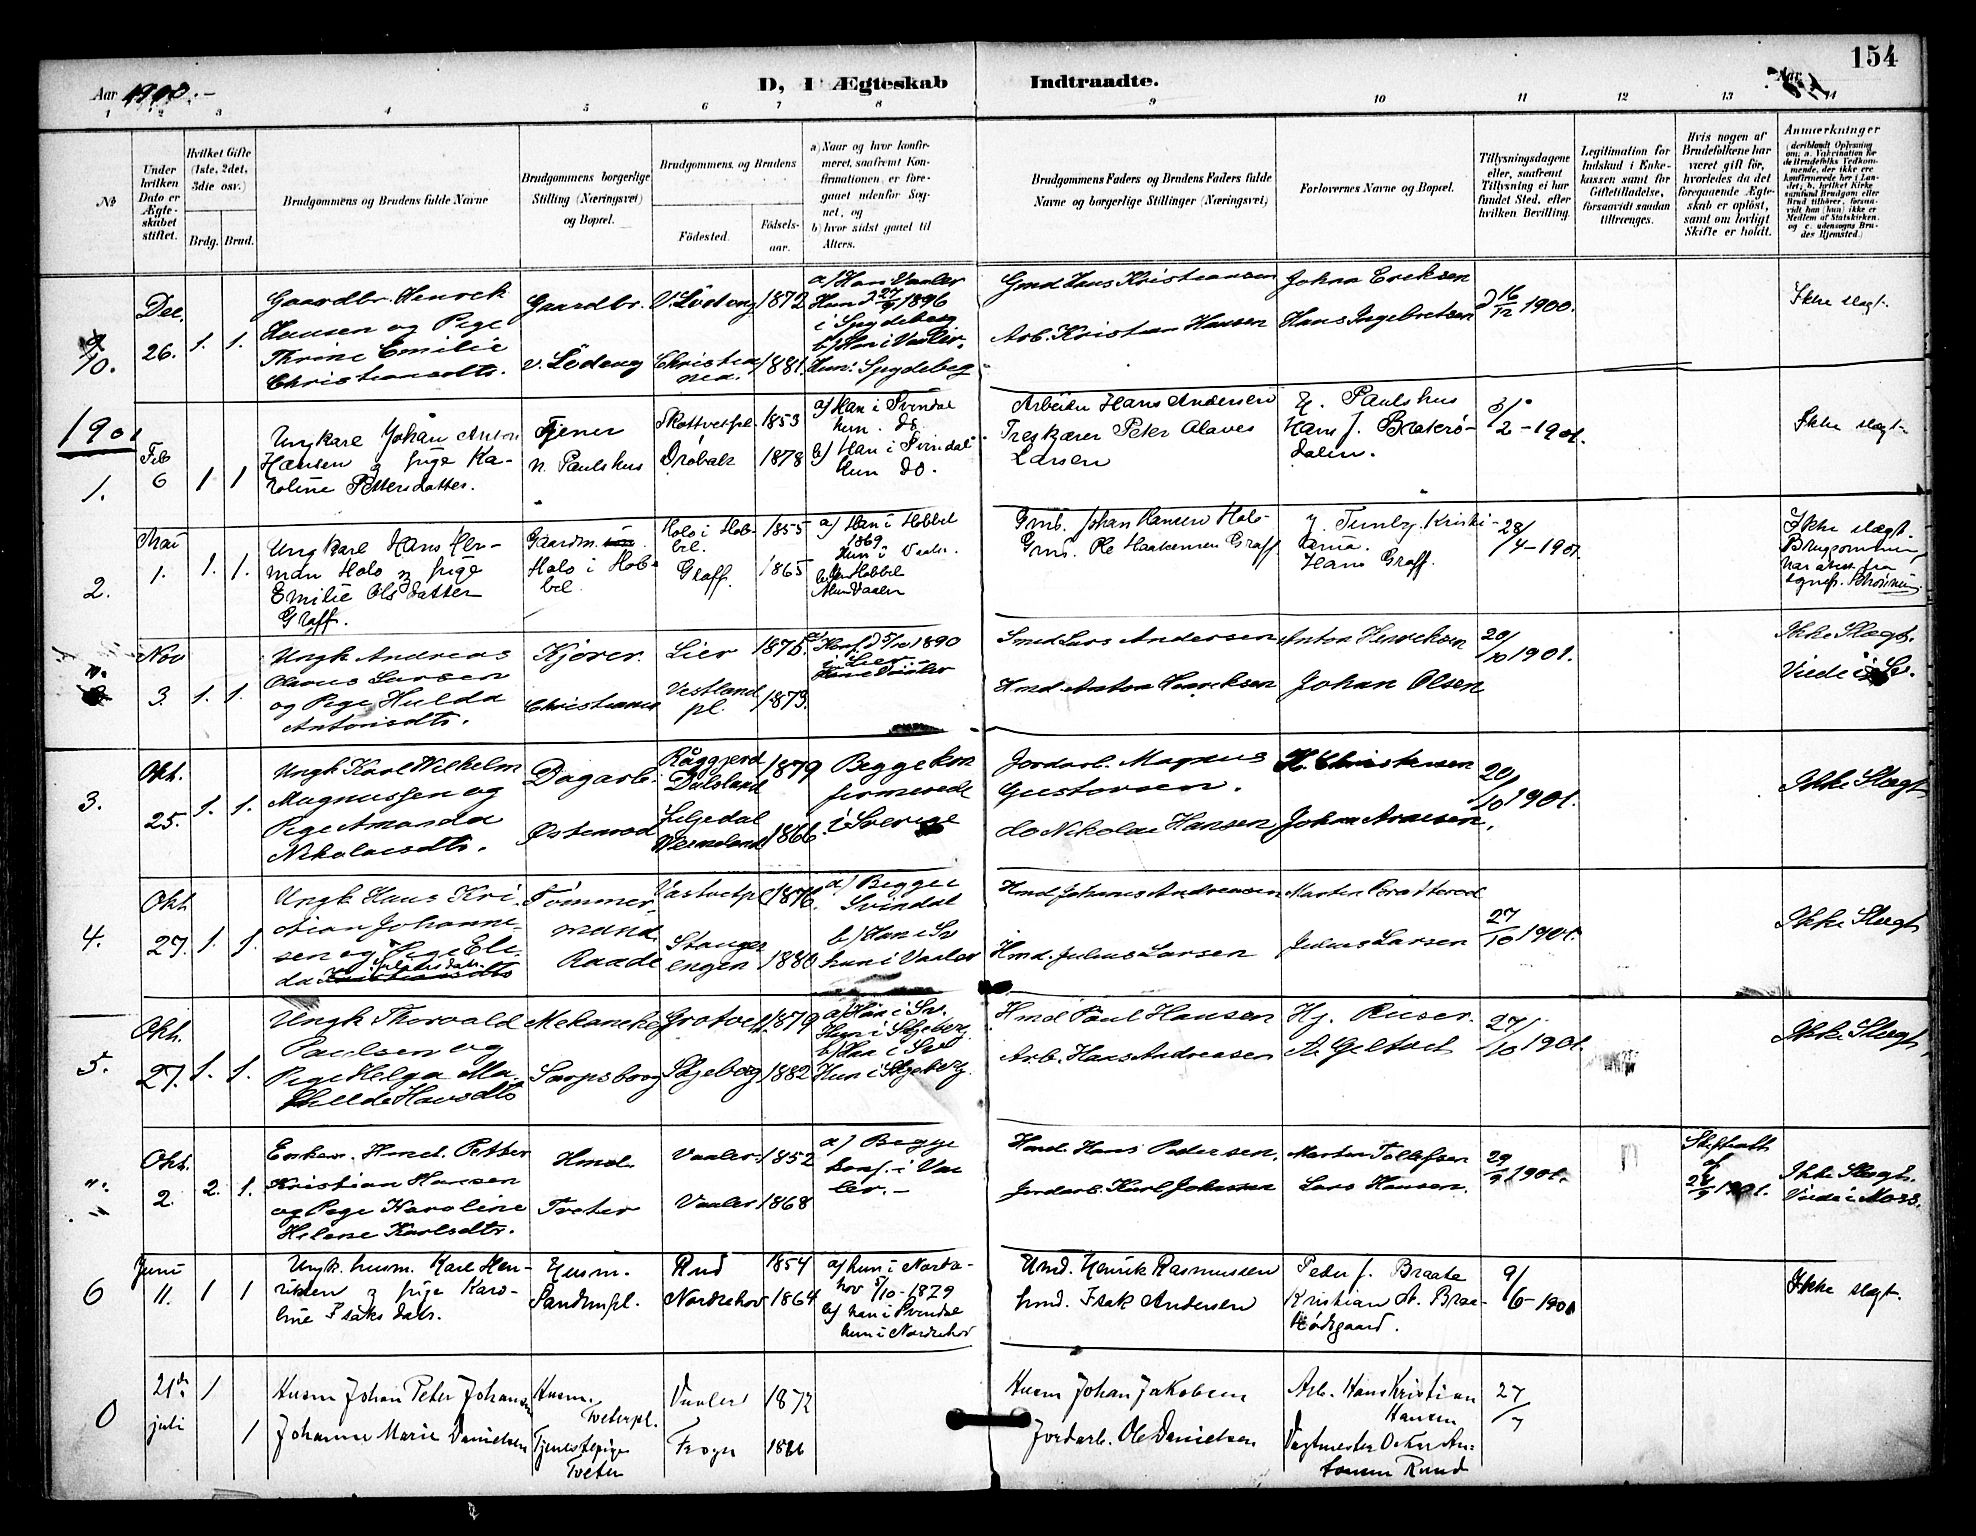 154
Aar 1900.-
D, I Ægteskab Indtraadte.
Aar
1 2 3 4 5 6 7 8 9 10 11 12 13 14
No
Under hvilken Dato er Ægteskabet stiftet.
Hvilket Gifte (1ste, 2det, 3die osv.)
Brdg. Brud.
Brudgommens og Brudens fulde Navne
Brudgommens borgerlige Stilling (Næringsvei) og Bopæl.
Brudgommens og Brudens
Fødested.
Fødselsaar.
a) Naar og hvor konfirmeret, saafremt Konfirmationen er foregaaet udenfor Sognet, og
b) hvor sidst gaaet til Alters.
Brudgommens Faders og Brudens Faders fulde Navne og borgerlige Stillinger (Næringsvei)
Forlovernes Navne og Bopæl.
Tillysningsdagene eller, saafremt Tillysning ei har fundet Sted, efter hvilken Bevilling.
Legitimation for Indskud i Enkekassen samt for Giftetilladelse, forsaavidt saadan tiltrænges.
Hvis nogen af Brudefolkene har været gift før, hvorledes da det foregaaende Ægteskab er opløst, samt om lovligt Skifte er holdt.
Anmærkninger (deriblandt Oplysning om: a. Vakcination for de Brudefolks Vedkommende, der ikke ere konfirmerede her i Landet; b. hvilket Kirkesamfund Brudgom eller Brud tilhører, forsaavidt han (hun) ikke er Medlem af Statskirken, og c. udensogns Brudes Hjemsted.)
10.
Dec. 26. 1. 1.
Gaardbr. Henrik
Hansen og Pige
Thrine Emilie
Christiansdtr.
Gaardbr.
v. Lödeng
V. Lödeng 1872
Christiania. 1881.
a) Han Vaaler
Hun d 27/9 1896
i Spydeberg
b) Han i Vaaler.
Hun: Spydeberg
Gmd Hans Kristiansen
Arb. Kristian Hansen
Johan Eriksen
Hans Ingebretsen
d 16/12 1900.
Ikke slægt.
1901
1.
Feb 6 1 1
Ungkarl Johan Anton
Hansen og pige Ka-
roline Pettersdatter.
Tjener
n. Paulshus
Skottvetpl. 1853
Drøbak 1878
a) Han i Svindal
hun do.
b) Han i Svindal
hun do.
Arbeider Hans Andersen
Treskjærer Peter Olaves
Larsen
H. Paulshus
Hans J. Braterø-
dalen.
3/2 - 1901.
Ikke slægt.
2.
Mai 1. 1. 1.
Ungkarl Hans Her-
man Holo og pige
Emilie Olsdatter
Graff.
Gaardm.
Holo i Hob-
bel.
Holo i Hob-
bel. 1855
Graff. 1865
a) Han i Hobbel
1869
Hun i Vaaler.
b) Han Hobbel
Hun Vaaler
Gmb. Johan Hansen Holo
Gmb. Ole Haakensen Graff
Kristi-
ania.
Hans Graff.
28/4 - 1901.
Ikke slægt.
Brudgommen
har attest fra
sognepr.
Nov 3. 1. 1.
Ungk Andreas
Olaus Larsen
og Pige Hulda
Antonsdtr.
Kjører.
Christiania
Lier 1875.
Vestland
pl. 1873.
a) Konf. d 5/10 1890
i Lier
Smed Lars Andersen
Hmd. Anton Henriksen
Anton Henriksen
Johan Olsen
20/10 1901.
Ikke Slægt.
Viede i
3.
Okt. 25. 1. 1.
Ungk Karl Wilhelm
Magnussen og
Pige Amanda
Nikolaisdtr.
Dagarb.
Østenrød
Råggjerd
Dalsland 1879
Seljedal
Wermeland 1866
Begge kon
firmerede
i Sverige
Jordarb. Magnus
Gustavsen.
do Nikolai Hansen
K. Christensen
Johan Arnesen.
20/10 1901.
Ikke Slægt
4.
Okt 27. 1. 1.
Ungk Hans Kri
stian Johanne-
sen og Pige Eli-
da Juliusdatr.
Tömmer-
mand.
Raade
Vastvetpl 1876
Stanger-
engen 1880
a) Begge i
Svindal
b) Han i Sv
hun i Vaaler
Hmd Johannes Andreassen
Hmd. Julius Larsen
Martin Bradterød
Julius Larsen
27/10 1901.
Ikke Slægt
5.
Okt. 27. 1. 1.
Ungk Thorvald
Paulsen og
Pige Helga Ma
thilde Hansdtr
Mekaniker
Sarpsborg
Grotvedt. 1879
Skjeberg 1882
a) Han i Sv.
Hun i Skjeberg.
b) Han i Sv
Hun i Skjeberg.
Hmd Paul Hansen
Arb. Hans Andreasen
Hj. Ruser.
A. Geltvet
27/10 1901.
Ikke Slægt,
Okt. 2. 2. 1.
Enkem. Hmd. Petter
Kristian Hansen
og Pige Karoline
Helene Karlsdtr.
Hmd.
Tveter
Vaaler 1852
Vaaler 1868
a) Begge
konf. i Vaa
ler. -
Hmd. Hans Pedersen.
Jordarb. Karl Johansen
Martin Tollefsen
Lars Hansen.
29/9 1901.
Skifteatt
af
28/9 1901.
Ikke Slægt.
Viede i Moss.
6
Juni 11. 1 1
Ungk. husm. Karl Hen-
riksen og pige Karo-
line Isaksdatr.
Husm.
Sandenpl.
Rud 1854
Norderhov 1864
a) hun i Norde-
hov 5/10 - 1879
b) han i Svindal
hun i Norderhov
Hmd. Henrik Rasmussen
hmd. Isak Andersen
Peter J. Braate
Kristian A. Braa-
tödegaard.
9/6 - 1901
Ikke slægt.
0
21de juli 1 1
Husm Johan Peter Johansen
Johanne Marie Danielsen
Husm.
Tveterpl.
Tjenestepige
Tveter
Vaaler 1872
Frogn
Husm Johan Jakobsen
Jordarb. Ole Danielsen
Arb. Hans Kristian
Hansen
Vagtmester Oskar An-
tonsen Ruud
27/7